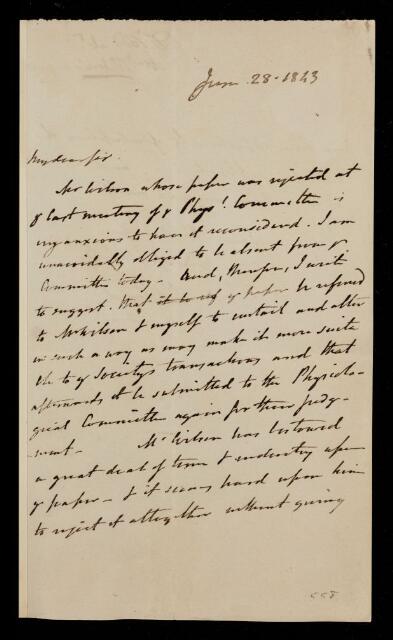 June 28. 1843
My dear Sir.
Mr Wilson whose paper was rejected at
ye last meeting of ye Physl. Committee is
very anxious to have it reconsidered. I am
unavoidably obliged to be absent from ye
Committee today. And, therefore, I write
to suggest. that ye paper be referred
to Mr Wilson & myself to curtail and alter
in such a way as may make it more suita
ble to ye Society's transactions and that
afterwards it be submitted to the Physiolo-
gical Committee again for their judg-
ment. Mr Wilson has bestowed
a great deal of time & industry upon
ye paper - & it seems hard upon him
to reject it altogether without giving
558